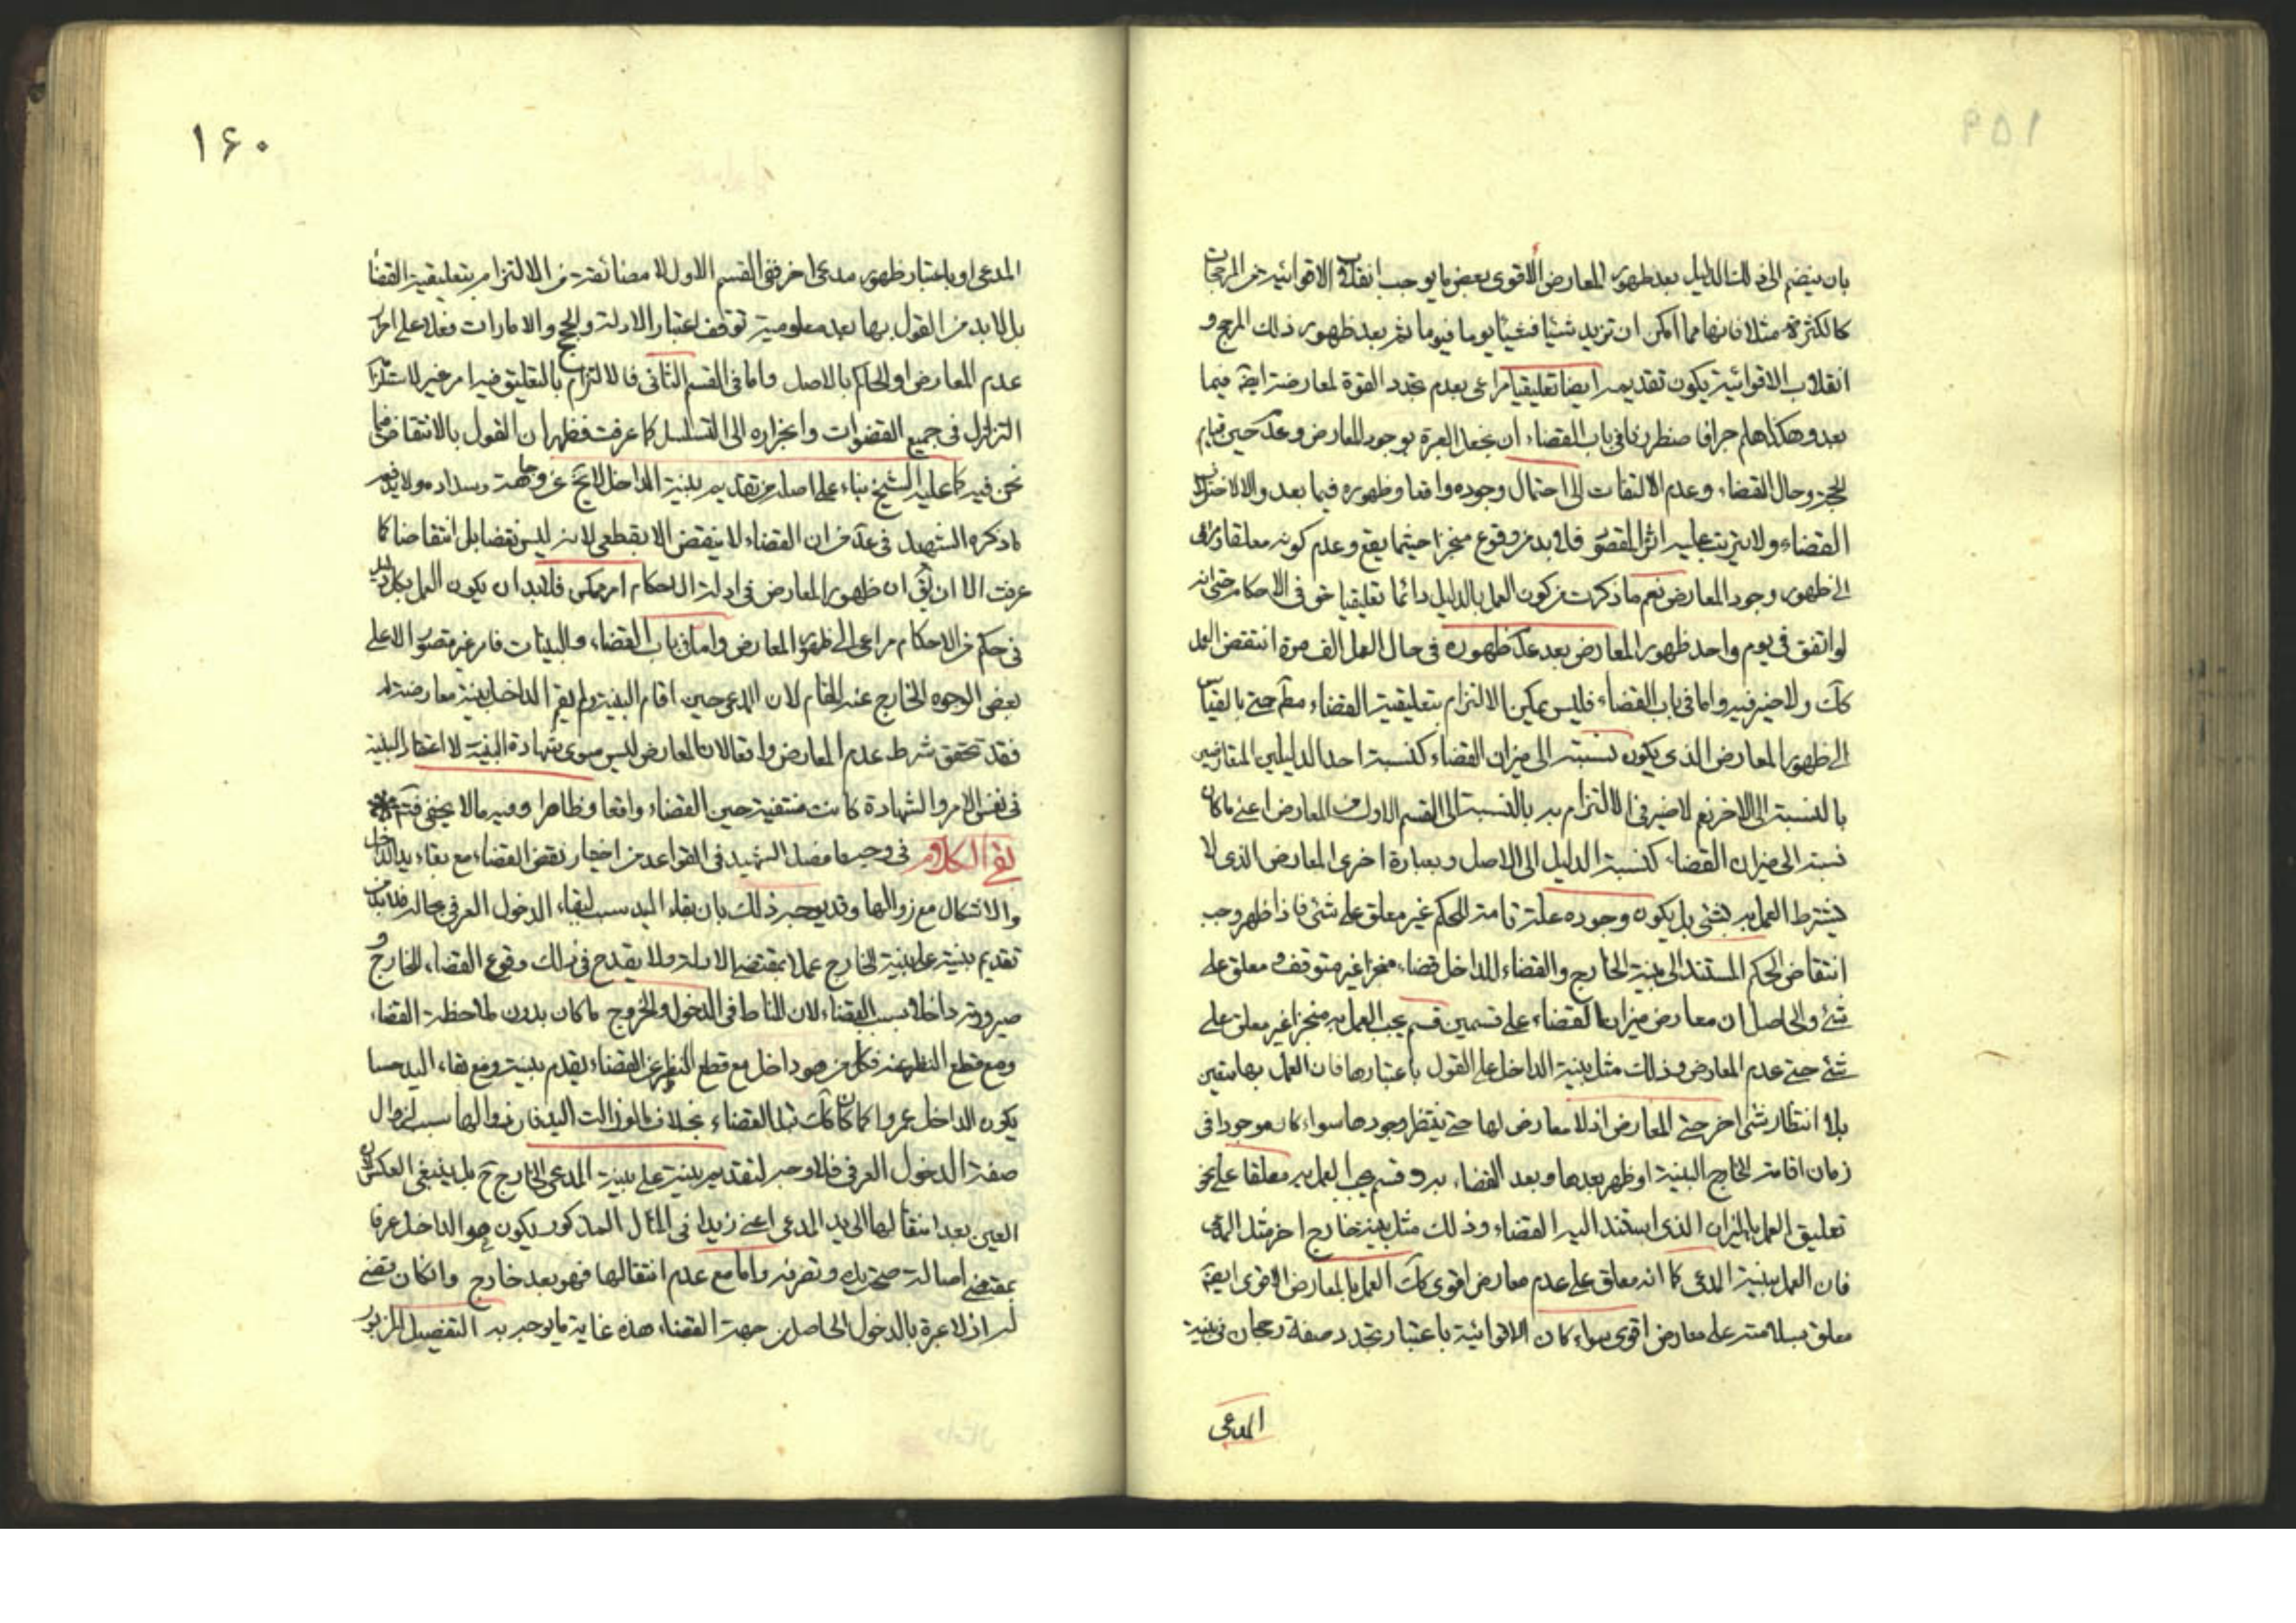 بان ينضم الى ذلك الدليل بعد ظهور المعارض الأقوى بعض ما يوجب انقلاب الاقوائيه من المرجحات
كالكثرة مثلا فانها مما امكن ان تزيد شيئا فشيئا يوما فيوما ثم بعد ظهور ذلك المرجح و
انقلاب الاقوائية يكون تقديمه ايضا تعليقيا مراعى بعدم تجدد القوة لمعارضته ايضا فيما
بعد وهكذا هلم جرا فا نظرنا فى باب القضاء ان نجعل العبرة بوجود المعارض وعدمه حين قيام
الحجة وحال القضاء وعدم الالتفات الى احتمال وجوده واقعا وظهوره فيما بعد والا لاختل
القضاء ولا يترتب عليه اثر المقصود فلا بد من وقوع منجزا حيثما يقع وعدم كونه معلقا ومراعى
الى ظهور وجود المعارض نعم ما ذكرت من كون العمل بالدليل دائما تعليقيا حق فى الاحكام حتى انه
لو اتفق فى يوم واحد ظهور المعارض بعد عدم ظهوره فى حال العمل الف مرة انتقض العمل
كك ولا ضير فيه واما فى باب القضاء فليس يمكن الالتزام بتعليقية القضاء مطم حتى بالقياس
الى ظهور المعارض الذى يكون نسبته الى ميزان القضاء كنسبة احد الدليلين المتعارضين
بالنسبة الى الاخر نعم لا ضير فى الالتزام به بالنسبة الى القسم الاول من المعارض اعنى ما كان
نسبته الى ميزان القضاء كنسبة الدليل الى الاصل وبعبارة اخرى المعارض الذى لا
يشترط العمل به بشئ بل يكون وجوده علة تامة للحكم غير معلق على شئ فاذا ظهر وجب
انتقاض الحكم المستند الى بينة الخارج والقضاء للداخل قضاء منجزا غير متوقف و معلق على
شئ والحاصل ان معارض ميزان القضاء على قسمين قسم يجب العمل به منجزا غير معلق على
شئ حتى عدم المعارض وذلك مثل بينة الداخل على القول باعتبارها فان العمل بها متعين
بلا انتظار شئ اخر حتى المعارض اذ لا معارض لها حتى ينتظر وجودها سواء كان موجودا فى
زمان اقامة الخارج البينة او ظهر بعدها وبعد القضاء به وقسم يجب العمل به معلقا على نحو
تعليق العمل بالميزان الذى استند اليه القضاء وذلك مثل بينة خارج اخر مثل المدعى
فان العمل ببينة المدعى كما انه معلق على عدم معارض اقوى كك العمل بالمعارض الاقوى ايضا
معلق بسلامته على معارض اقوى سواء كان الاقوائية باعتبار تجدد صفة رجحان فى بينة
المدعى
١۶٠
المدعى او باعتبار ظهور مدعى اخر ففى القسم الاول لا مضائقة من الالتزام بتعليقية القضاء
بل لا بد من القول بها بعد معلومية توقف اعتبار الادلة والحجج والامارات فعلا على احراز
عدم المعارض او الحاكم بالاصل واما فى القسم الثانى فالالتزام بالتعليق فيه امر غير
التزلزل فى جميع القضوات وانجراره الى التسلسل كما عرفت فظهر ان القول بالانتقاض فيما
نحن فيه كما عليه الشيخ بناء على اصله من تقديم بينة الداخل لا يخ عن وجاهة وسداد ولا يدفعه
ما ذكره الشهيد فى عد من ان القضاء لا ينقض الا بقطعى لانه ليس نقضا بل انتقاضا كما
عرفت الا ان يق ان ظهور المعارض فى ادلة الاحكام امر ممكن فلابد ان يكون العمل بكل دليل
فى حكم من الاحكام مراعى الى ظهور المعارض واما فى باب القضاء والبينات فامر غير متصور الا على
بعض الوجوه الخارج عنه المقام لان المدعى حين اقام البينة ولم يقم الداخل بينة معارضة له
فقد تحقق شرط عدم المعارض واقعا لان المعارض ليس سوى شهادة البينة لا اعتقاد البينة
فى نفس الامر والشهادة كانت منتفية حين القضاء واقعا وظاهرا وفيه ما لا يخفى فتم
بقى الكلام فى وجه ما فصل الشهيد فى القواعد من اختيار نقض القضاء مع بقاء يد الداخل
والاشكال مع زوالها وقد يوجه ذلك بان بقاء اليد سبب لبقاء الدخول العرفى بحاله فلابد من
تقديم بينة على بينة الخارج عملا بمقتضى الادلة ولا يقدح فى ذلك وقوع القضاء للخارج و
صيرورته داخلا بسبب القضاء لان المناط فى الدخول والخروج ما كان بدون ملاحظة القضاء
ومع قطع النظر عنه فكل من هو داخل مع قطع النظر عن القضاء يقدم بينة ومع بقاء اليد حسا
يكون الداخل عمروا كما كان كك قبل القضاء بخلاف ما لو زالت اليد فان زوالها سبب لزوال
صفة الدخول العرفى فلا وجه لتقديم بينة على بينة المدعى الخارج ح بل ينبغى العكس لان
العين بعد انتقالها الى يد المدعى اعنى زيدا فى المثال المذكور يكون هو الداخل عرفا
بمقتضى اصالة صحة يده وتصرفه واما مع عدم انتقالها فهو بعد خارج وان كان قضى
له اذ لا عبرة بالدخول الحاصل من جهة القضاء هذه غاية ما يوجه به التفصيل المزبور